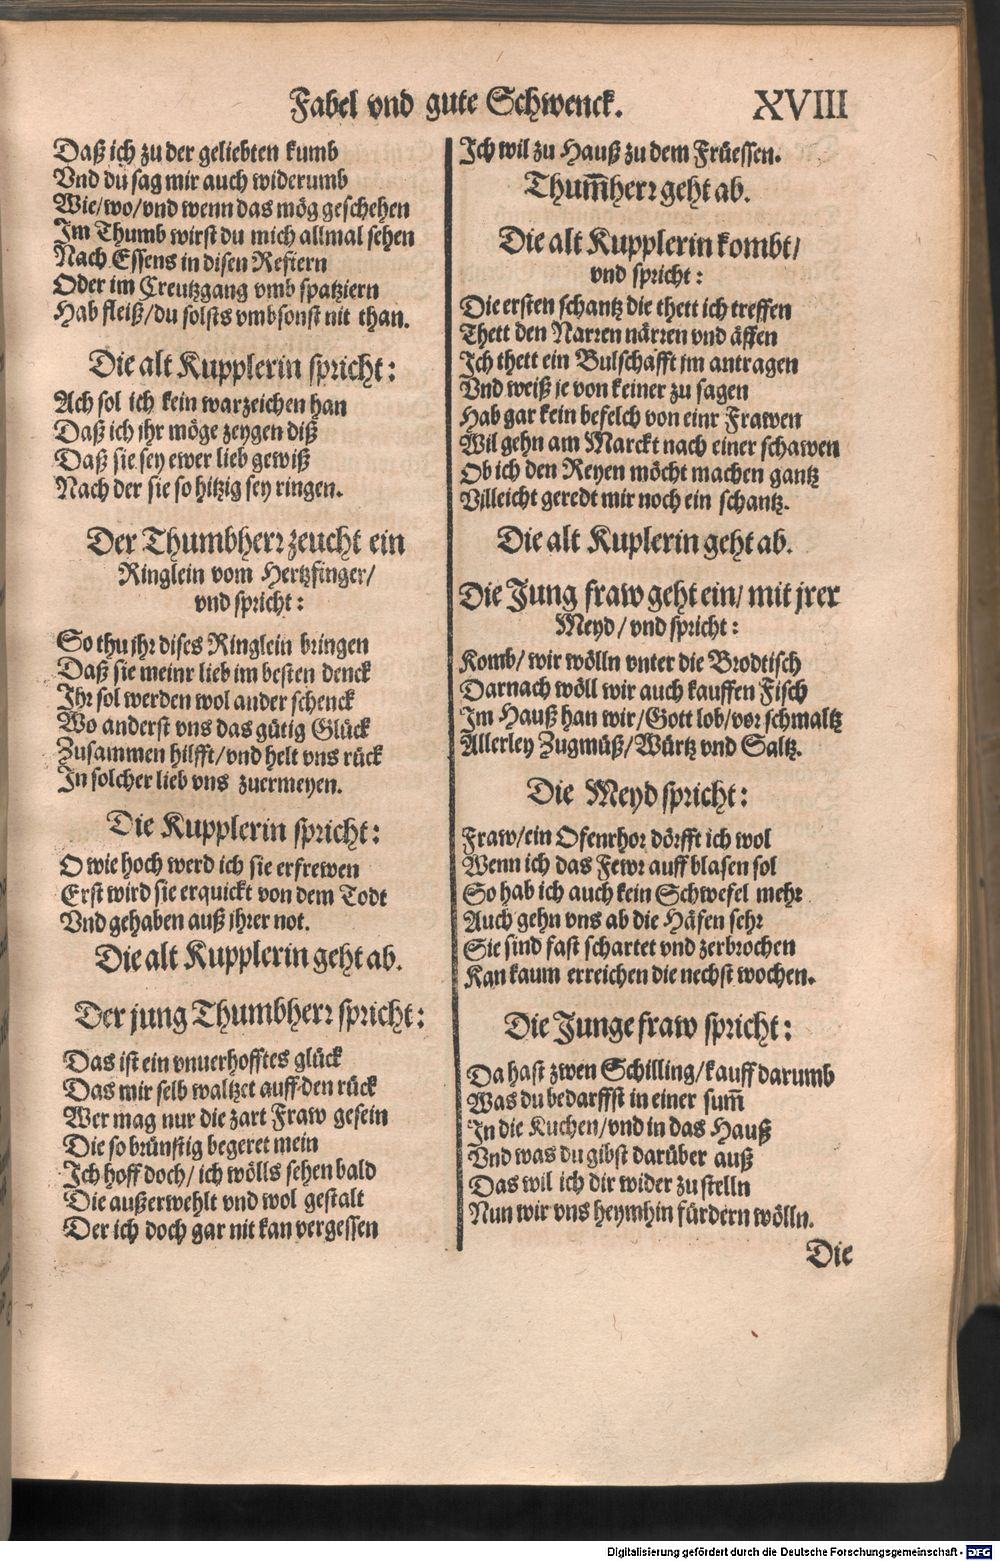 Fabel vnd gute Schwenck. XVIII
Daß ich zu der geliebten kumb
Vnd du sag mir auch widerumb
Wie/wo/vnd wenn das mög geschehen
Im Thumb wirst du mich allmal sehen
Nach Essens in disen Refiern
Oder im Creutzgang vmb spatziern
Hab fleiß/du solsts vmbsonst nit than.
Die alt Kupplerin spricht:
Ach sol ich kein warzeichen han
Daß ich jhr möge zeygen diß
Daß sie sey ewer lieb gewiß
Nach der sie so hitzig sey ringen.
Der Thumbherr zeucht ein
Ringlein vom Hertzfinger/
vnd spricht:
So thu jhr dises Ringlein bringen
Daß sie meinr lieb im besten denck
Ihr sol werden wol ander schenck
Wo anderst vns das gütig Glück
Zusammen hilfft/vnd helt vns rück
In solcher lieb vns zuermeyen.
Die Kupplerin spricht:
O wie hoch werd ich sie erfrewen
Erst wird sie erquickt von dem Todt
Vnd gehaben auß jhrer not.
Die alt Kupplerin geht ab.
Der jung Thumbherr spricht:
Das ist ein vnuerhofftes glück
Das mir selb waltzet auff den rück
Wer mag nur die zart Fraw gesein
Die so brünstig begeret mein
Ich hoff doch/ ich wölls sehen bald
Die außerwehlt vnd wol gestalt
Der ich doch gar nit kan vergessen
Ich wil zu Hauß zu dem Früessen.
Thum̃herr geht ab.
Die alt Kupplerin kombt/
vnd spricht:
Die ersten schantz die thett ich treffen
Thett den Narren närren vnd äffen
Ich thett ein Bulschafft jm antragen
Vnd weiß je von keiner zu sagen
Hab gar kein befelch von einr Frawen
Wil gehn am Marckt nach einer schawen
Ob ich den Reyen möcht machen gantz
Villeicht geredt mir noch ein schantz.
Die alt Kuplerin geht ab.
Die Jung fraw geht ein/ mit jrer
Meyd/ vnd spricht:
Komb/ wir wölln vnter die Brodtisch
Darnach wöll wir auch kauffen Fisch
Im Hauß han wir/Gott lob/vor schmaltz
Allerley Zugmüß/Würtz vnd Saltz.
Die Meyd spricht:
Fraw/ein Ofenrhor dörfft ich wol
Wenn ich das Fewr auff blasen sol
So hab ich auch kein Schwefel mehr
Auch gehn vns ab die Häfen sehr
Sie sind fast schartet vnd zerbrochen
Kan kaum erreichen die nechst wochen.
Die Junge fraw spricht:
Da hast zwen Schilling/kauff darumb
Was du bedarffst in einer sum̃
In die Kuchen/vnd in das Hauß
Vnd was du gibst darüber auß
Das wil ich dir wider zu stelln
Nun wir vns heymhin fürdern wölln.
Die
Digitalisierung gefördert durch die Deutsche Forschungsgemeinschaft - DFG